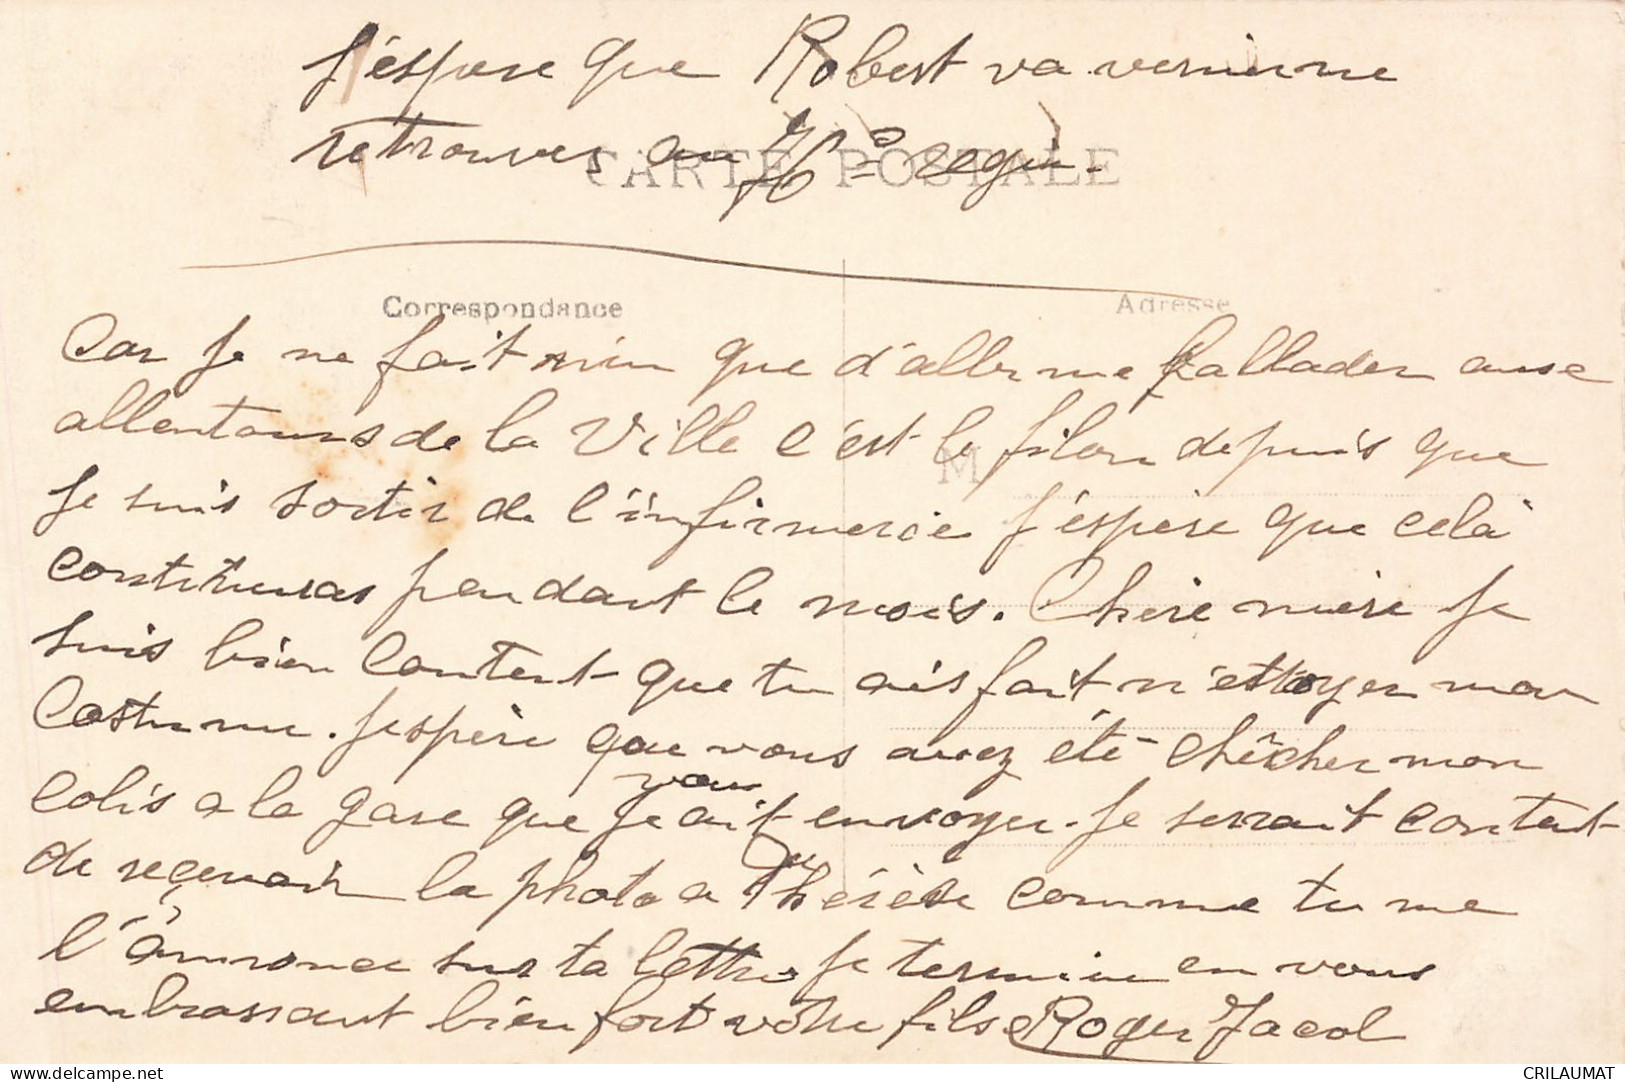 J'éspère que Robert va venir me
retrouver au regi.
CARTE POSTALE
Correspondance
Adresse
Car je ne fait rien que d'aller me ballader aux
allentours de la Ville c'est le filon depuis que
M
je suis sortir de l'infirmerie j'éspère que celà
continuras pendant le mois. Chère mère je
suis bien content que tu ais fait n'ettoyer mon
Costume. Jespère que vous avez été chêrcher mon
vous
colis a la gare que je ait envoyer. Je serrait content
de reçevoir la photo a Thérèse comme tu me
l'ânnonce sur ta lettre je termine en vous
embrassant bien fort vôtre fils Roger Jacob
delcampe.net
CRILAUMAT